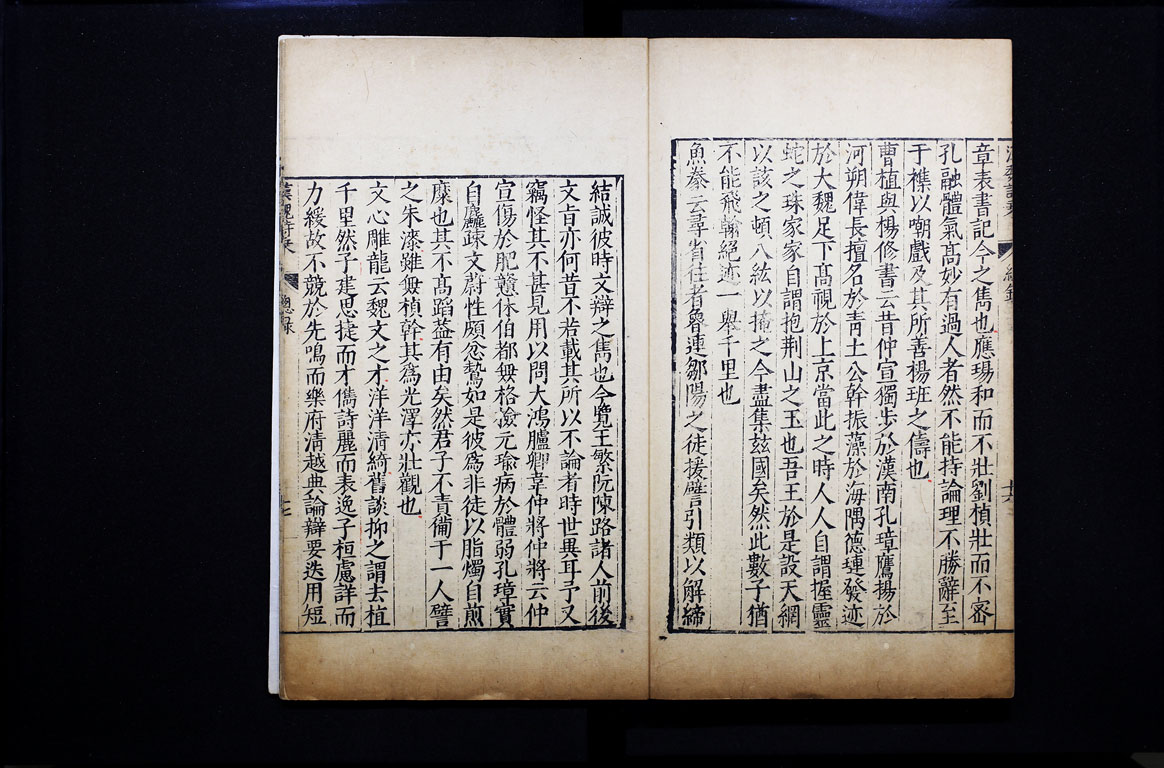 章表書記今之雋也應瑒和而不壯劉楨壯而不密
孔融體氣髙妙有過人者然不能持論理不勝辭至
于襍以嘲戲及其所善楊班之儔也
曹植與楊修書云昔仲宣獨步於漢南孔璋鷹揚於
河朔偉長擅名於靑土公幹振藻於海隅德璉發迹
於大魏足下髙視於上京當此之時人人自謂握靈
蛇之珠家家自謂抱荆山之玉也吾王於是設天網
以該之頓八紘以掩之今盡集玆國矣然此數子猶
不能飛翰絕迹一舉千里也
魚豢云尋省往者魯連鄒陽之徒援譬引類以解締
結誠彼時文辯之雋也今覽王繁阮陳路諸人前後
文㫖亦何昔不若載其所以不論者時世異耳予又
竊怪其不甚見用以問大鴻臚卿韋仲將仲將云仲
宣傷於肥戇休伯都無格檢元瑜病於體弱孔璋實
自麤疎文蔚性頗忿鷙如是彼爲非徒以脂燭自煎
糜也其不髙蹈葢有由矣然君子不責備于一人譬
之朱漆雖無楨幹其爲光澤亦壯觀也
文心雕龍云魏文之才洋洋淸綺舊談抑之謂去植
千里然子建思捷而才儁詩麗而表逸子桓慮詳而
力緩故不競於先鳴而樂府淸越典論辯要迭用短
漢魏詩乘
總錄
十七